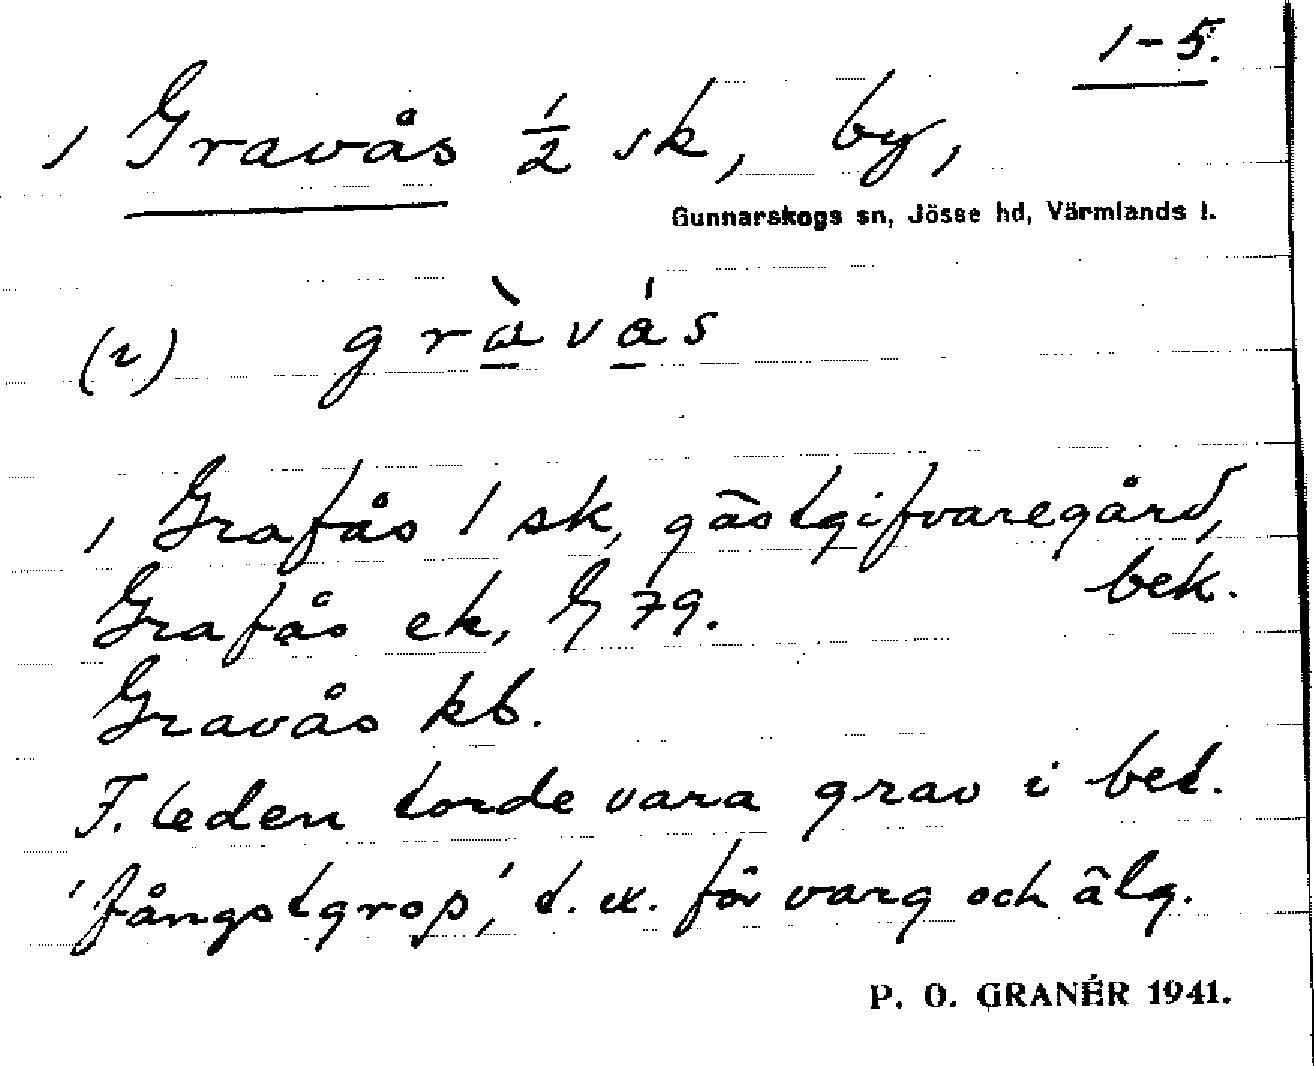 1-5.
1 Gravås ½ sk, by,
Gunnarskogs sn, Jösse hd, Värmlands l.
(2) gràvás
1 Grafås 1 sk, gästgifvaregård,
bek.
Grafås ek, G 79.
Gravås kb.
F. leden torde vara grav i bet.
'fångstgrop', t. ex. för varg och älg.
P. O. GRANÉR 1941.